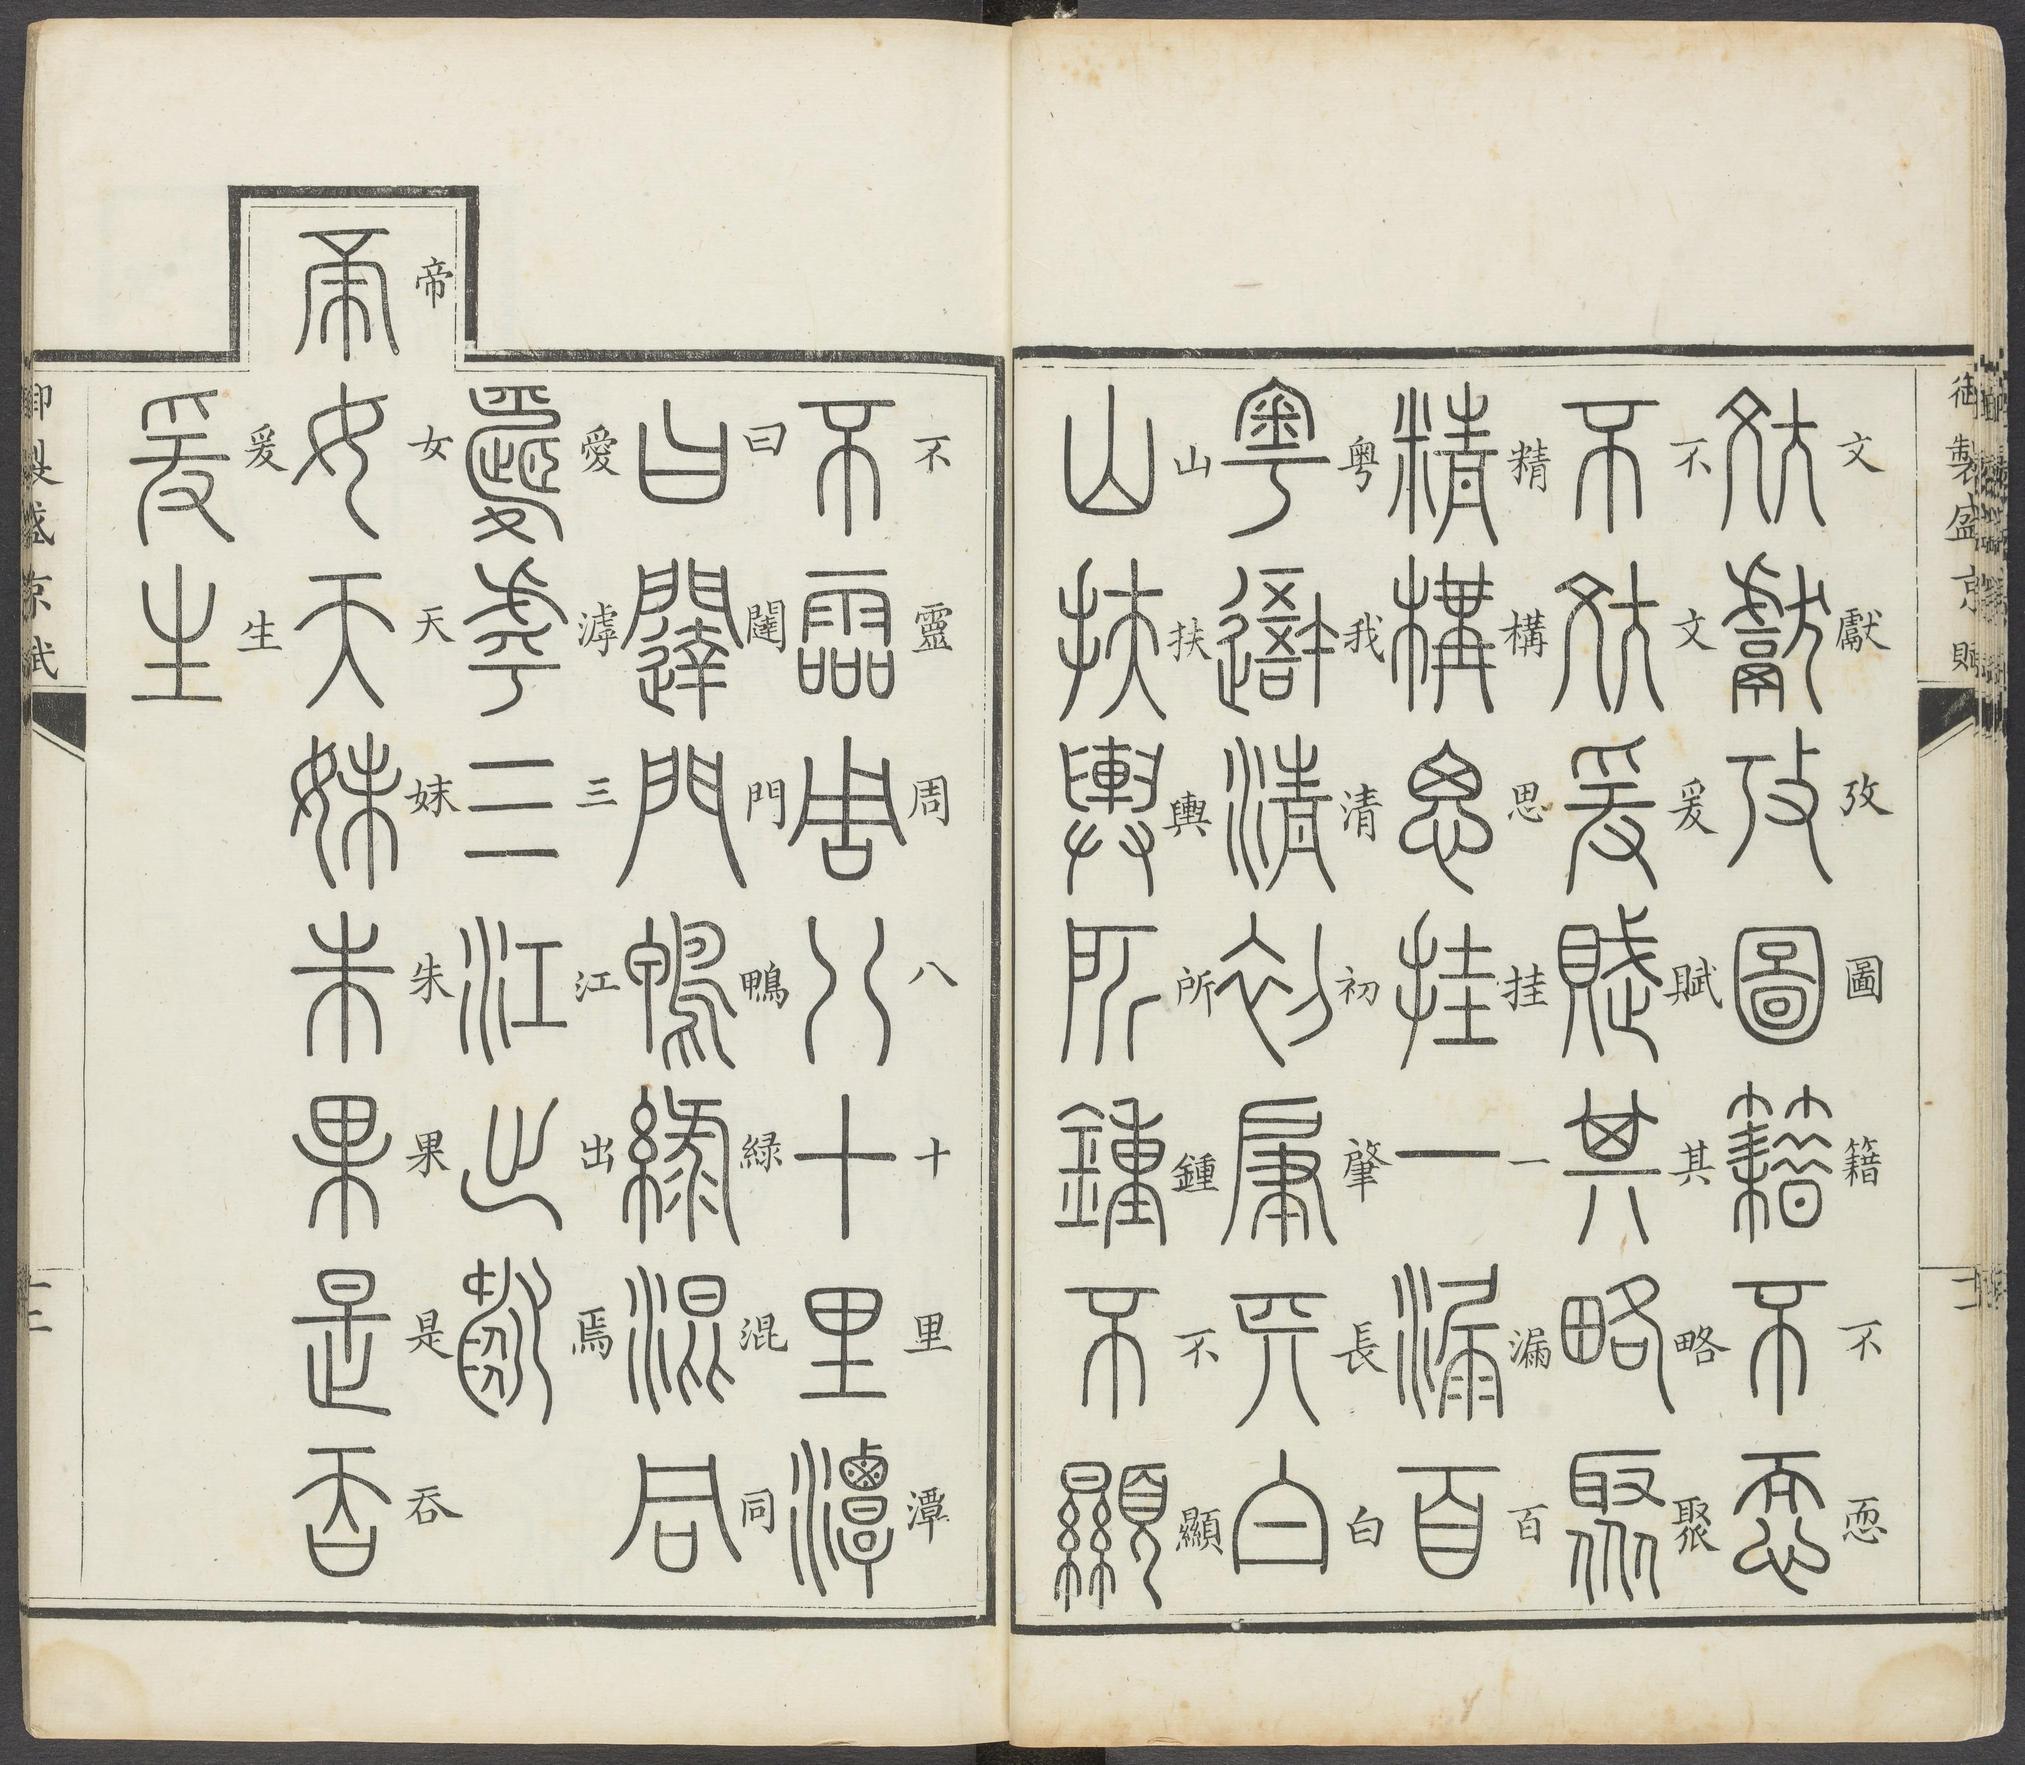 御製盛京賦
文獻攷圖籍不恧
不文爰賦其略聚
精構思挂一漏百
粤我清初肇長白
山扶輿所鍾不顯
不靈周八十里潭
曰闥門鴨緑混同
愛滹三江出焉
帝女天妹朱果是吞
爰生
御製盛京賦